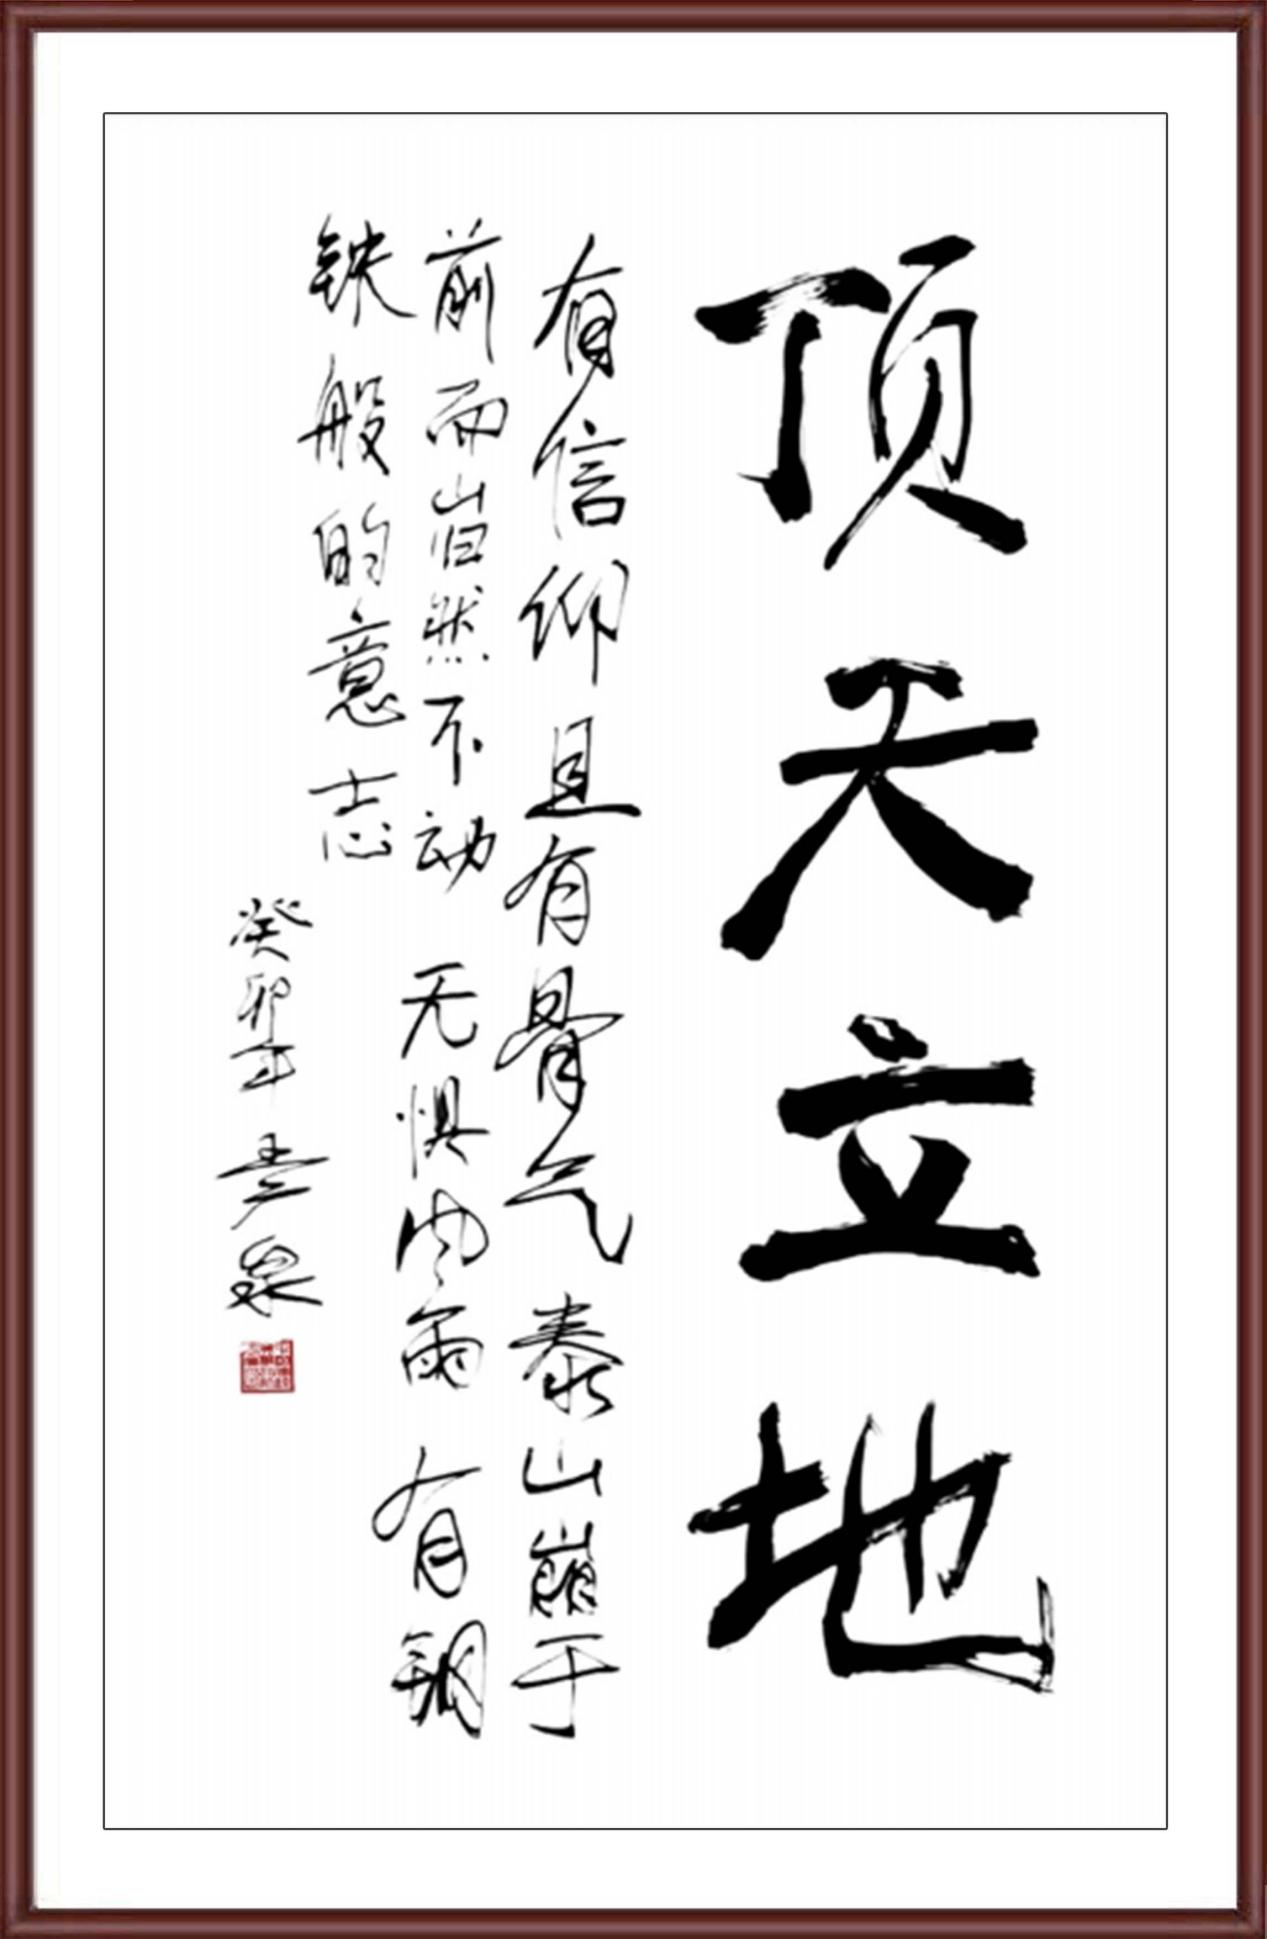 顶天立地
有信仰且有骨气泰山崩于
前而岿然不动无惧风雨有钢
铁般的意志
癸卯年